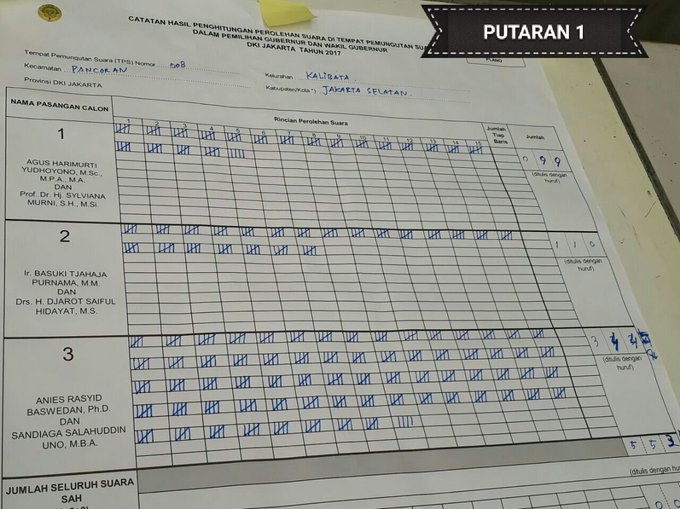 PUTARAN 1
CATATAN HASIL PENGHITUNGAN PEROLEHAN SUARA DI TEMPAT PEMUNGUTAN
DALAM PEMILIHAN GUBERNUR DAN WAKIL GUBERNUR
DKI JAKARTA TAHUN 2017
PLANO
Tempat Pemungutan Suara (TPS) Nomor 008
Kecamatan PANCORAN
Kelurahan KALIBATA
Provinsi DKI JAKARTA
Kabupaten/Kota *) JAKARTA SELATAN
NAMA PASANGAN CALON
Rincian Perolehan Suara
Jumlah Tiap Baris
Jumlah
1 2 3 4 5 6 7 8 9 10 11 12 13 14 15
1
AGUS HARIMURTI
YUDHOYONO, M.Sc.,
M.P.A., M.A.
DAN
Prof. Dr. Hj. SYLVIANA
MURNI, S.H., M.Si.
0 9 9
(ditulis dengan huruf)
2
Ir. BASUKI TJAHAJA
PURNAMA, M.M.
DAN
Drs. H. DJAROT SAIFUL
HIDAYAT, M.S.
1 1 0
(ditulis dengan huruf)
3
ANIES RASYID
BASWEDAN, Ph.D.
DAN
SANDIAGA SALAHUDDIN
UNO, M.B.A.
3
(ditulis dengan huruf)
5 5 3
JUMLAH SELURUH SUARA
SAH
(ditulis dengan